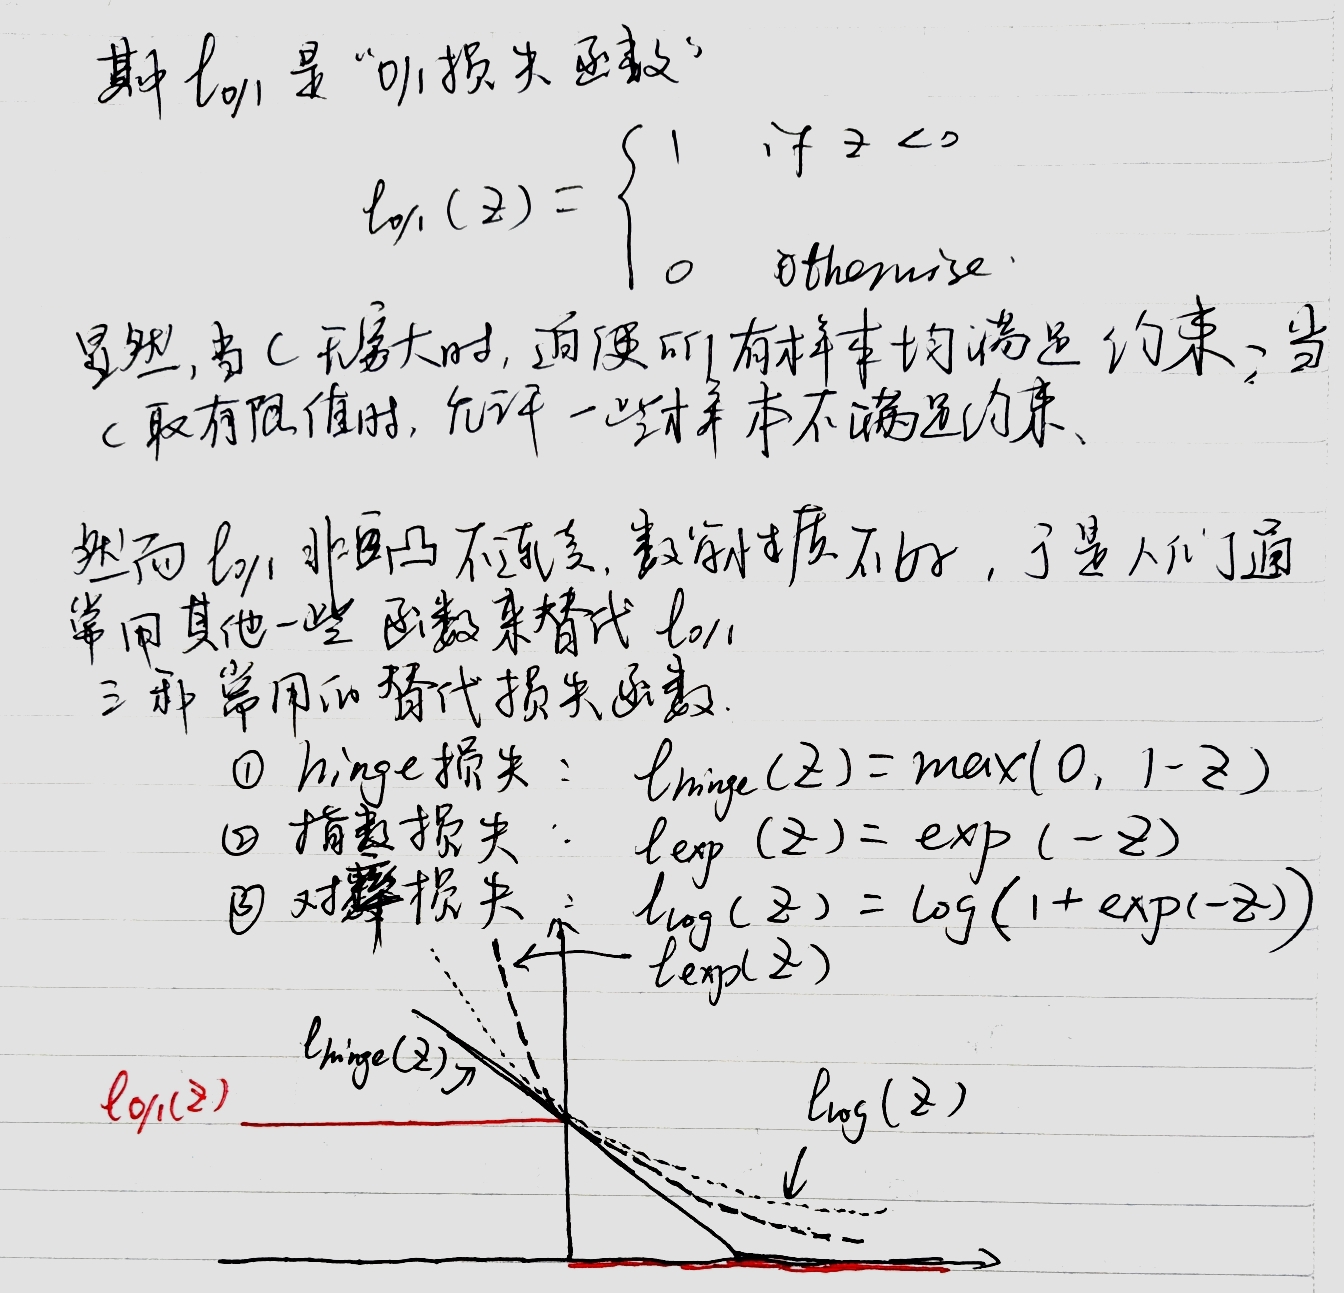 其中 ℓ0/1 是 “0/1损失函数”
ℓ0/1(z) = { 1 if z <0
0 otherwise.
显然,当C无穷大时,迫使所有样本均满足约束;当
C取有限值时,允许一些样本不满足约束、
然而 ℓ0/1 非凸不连续,数学性质不好,于是人们通
常用其他一些函数来替代 ℓ0/1
三种常用的替代损失函数.
① hinge损失: ℓhinge(z) = max(0, 1-z)
② 指数损失: ℓexp(z) = exp(-z)
③ 对率损失: ℓlog(z) = log(1+exp(-z))
ℓexp(z)
ℓhinge(z)
ℓ0/1(z)
ℓlog(z)